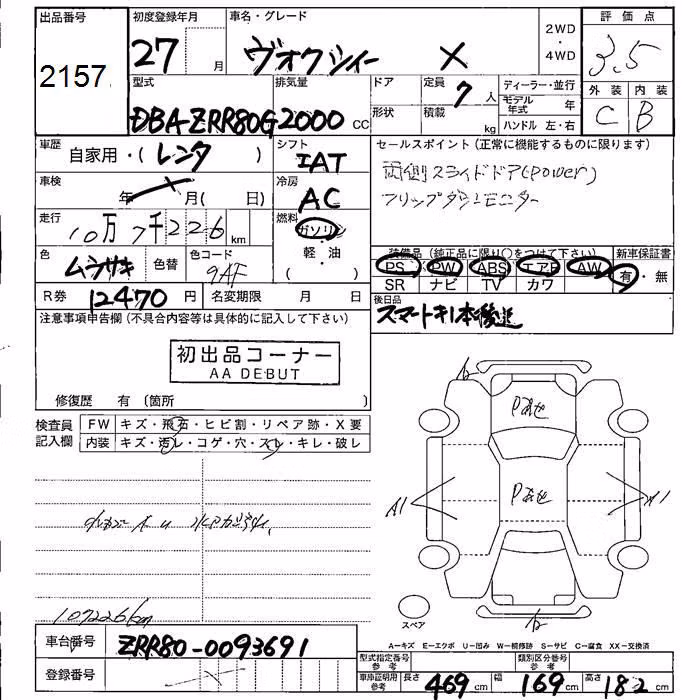 出品番号 初度登録年月 車名・グレード 評価点
2157 27 月 ヴォクシー X 2WD・4WD 3.5
型式 排気量 ドア 定員 ディーラー・並行 外装 内装
DBA-ZRR80G 2000 CC 7人 モデル年式 年 C B
形状 積載 kg ハンドル 左・右
車歴 自家用・(レンタ) シフト IAT セールスポイント(正常に機能するものに限ります)
車検 年 X 月( 日) 冷房 AC 両側スライドドア(power)
フリップダウンモニター
走行 10万7千226km 燃料 ガソリン
軽・油
・( )
色 ムラサキ 色替 色コード 9AF
装備品(純正品に限り○をつけて下さい) 新車保証書
PS PW ABS エアB AW 有・無
SR ナビ TV カワ
R券 12470円 名変期限 月 日 後日品
スマートキー1本後送
注意事項申告欄(不具合内容等は具体的に記入して下さい)
初出品コーナー
AA DEBUT
修復歴 有(箇所 )
検査員記入欄 FW キズ・飛石・ヒビ割・リペア跡・X要
内装 キズ・汚レ・コゲ・穴・スレ・キレ・破レ
Pあせ
Pあせ
A1 A1
107226km
スペア
A=キズ E=エクボ U=凹み W=補修跡 S=サビ C=腐食 XX=交換済
車台番号 ZRR80-0093691
型式指定番号参考 類別区分番号参考
登録番号
車庫証明用参考 長さ 469cm 幅 169cm 高さ 182cm